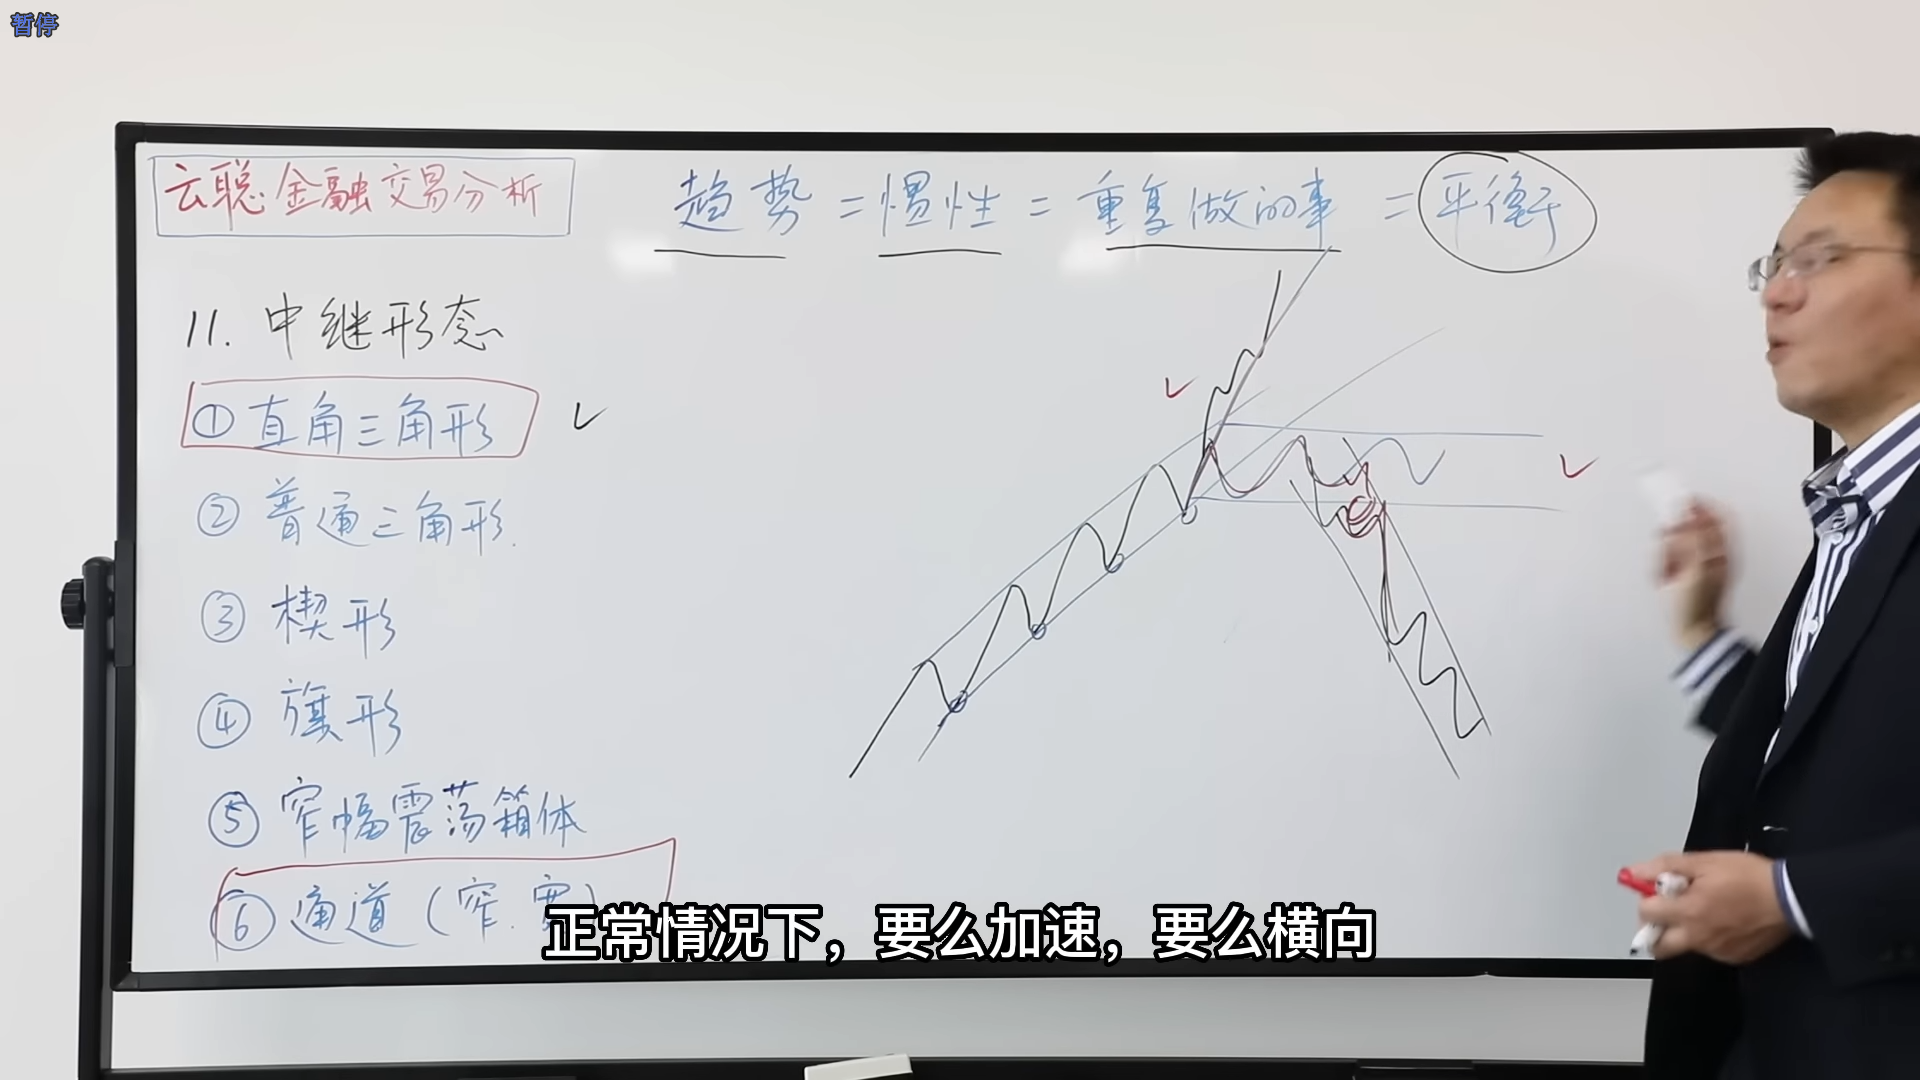 暂停
云聪金融交易分析
趋势=惯性=重复做的事=平衡
11.中继形态
①直角三角形
②普通三角形.
③楔形
④旗形
⑤窄幅震荡箱体
⑥通道(窄.宽)
正常情况下，要么加速，要么横向